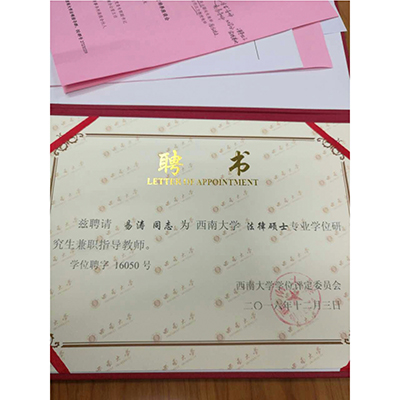 聘 书
LETTER OF APPOINTMENT
兹聘请 易涛 同志 为 西南大学 法律硕士 专业学位研
究生兼职指导教师。
学位聘字 16050 号
西南大学学位评定委员会
二〇一六年十二月三日